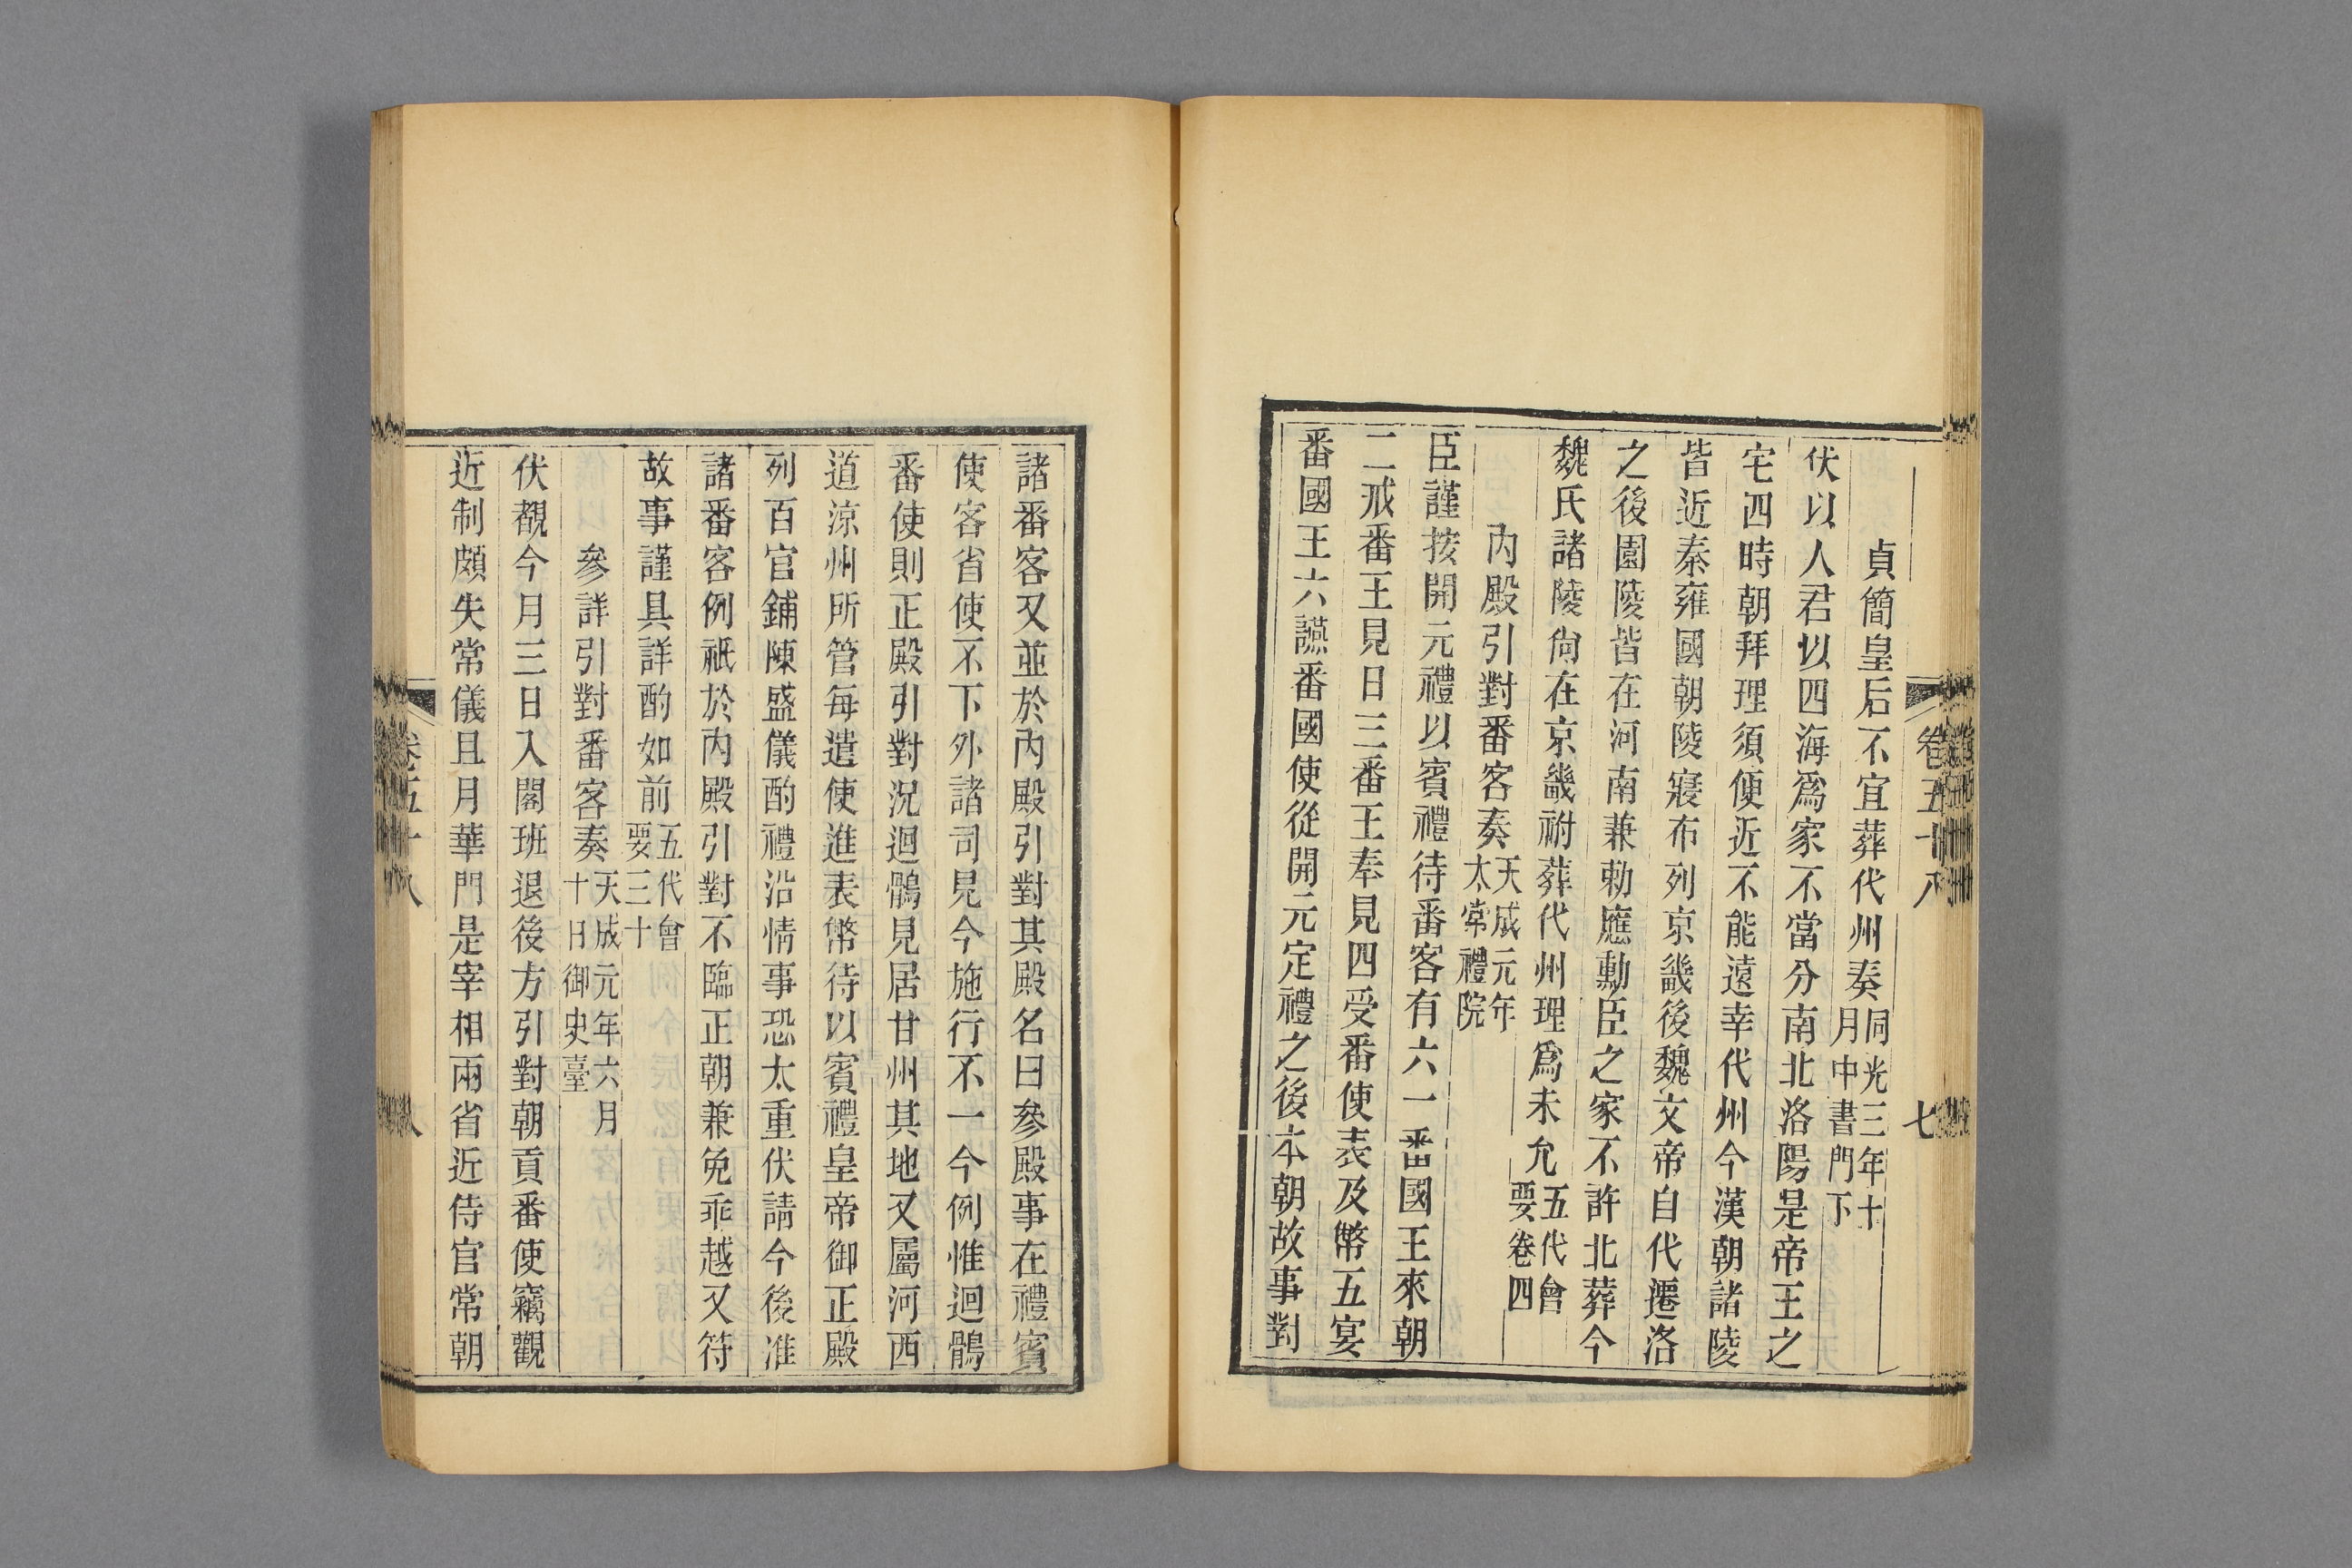 卷五十八
七
貞簡皇后不宜葬代州奏同光三年十
月中書門下
伏以人君以四海爲家不當分南北洛陽是帝王之
宅四時朝拜理須便近不能遠幸代州今漢朝諸陵
皆近秦雍國朝陵寢布列京畿後魏文帝自代遷洛
之後園陵皆在河南兼勑應勳臣之家不許北葬今
魏氏諸陵尙在京畿祔葬代州理爲未允五代會
要卷四
內殿引對番客奏天成元年
太常禮院
臣謹按開元禮以賓禮待番客有六一番國王來朝
二戒番王見日三番王奉見四受番使表及幣五宴
番國王六讌番國使從開元定禮之後本朝故事對
諸番客又並於內殿引對其殿名曰參殿事在禮賓
使客省使不下外諸司見今施行不一今例惟迴鶻
番使則正殿引對況迴鶻見居甘州其地又屬河西
道涼州所管每遣使進表幣待以賓禮皇帝御正殿
列百官鋪陳盛儀酌禮沿情事恐太重伏請今後准
諸番客例祇於內殿引對不臨正朝兼免乖越又符
故事謹具詳酌如前五代會
要三十
參詳引對番客奏天成元年六月
十日御史臺
伏覩今月三日入閣班退後方引對朝貢番使竊觀
近制頗失常儀且月華門是宰相兩省近侍官常朝
卷五十八
八